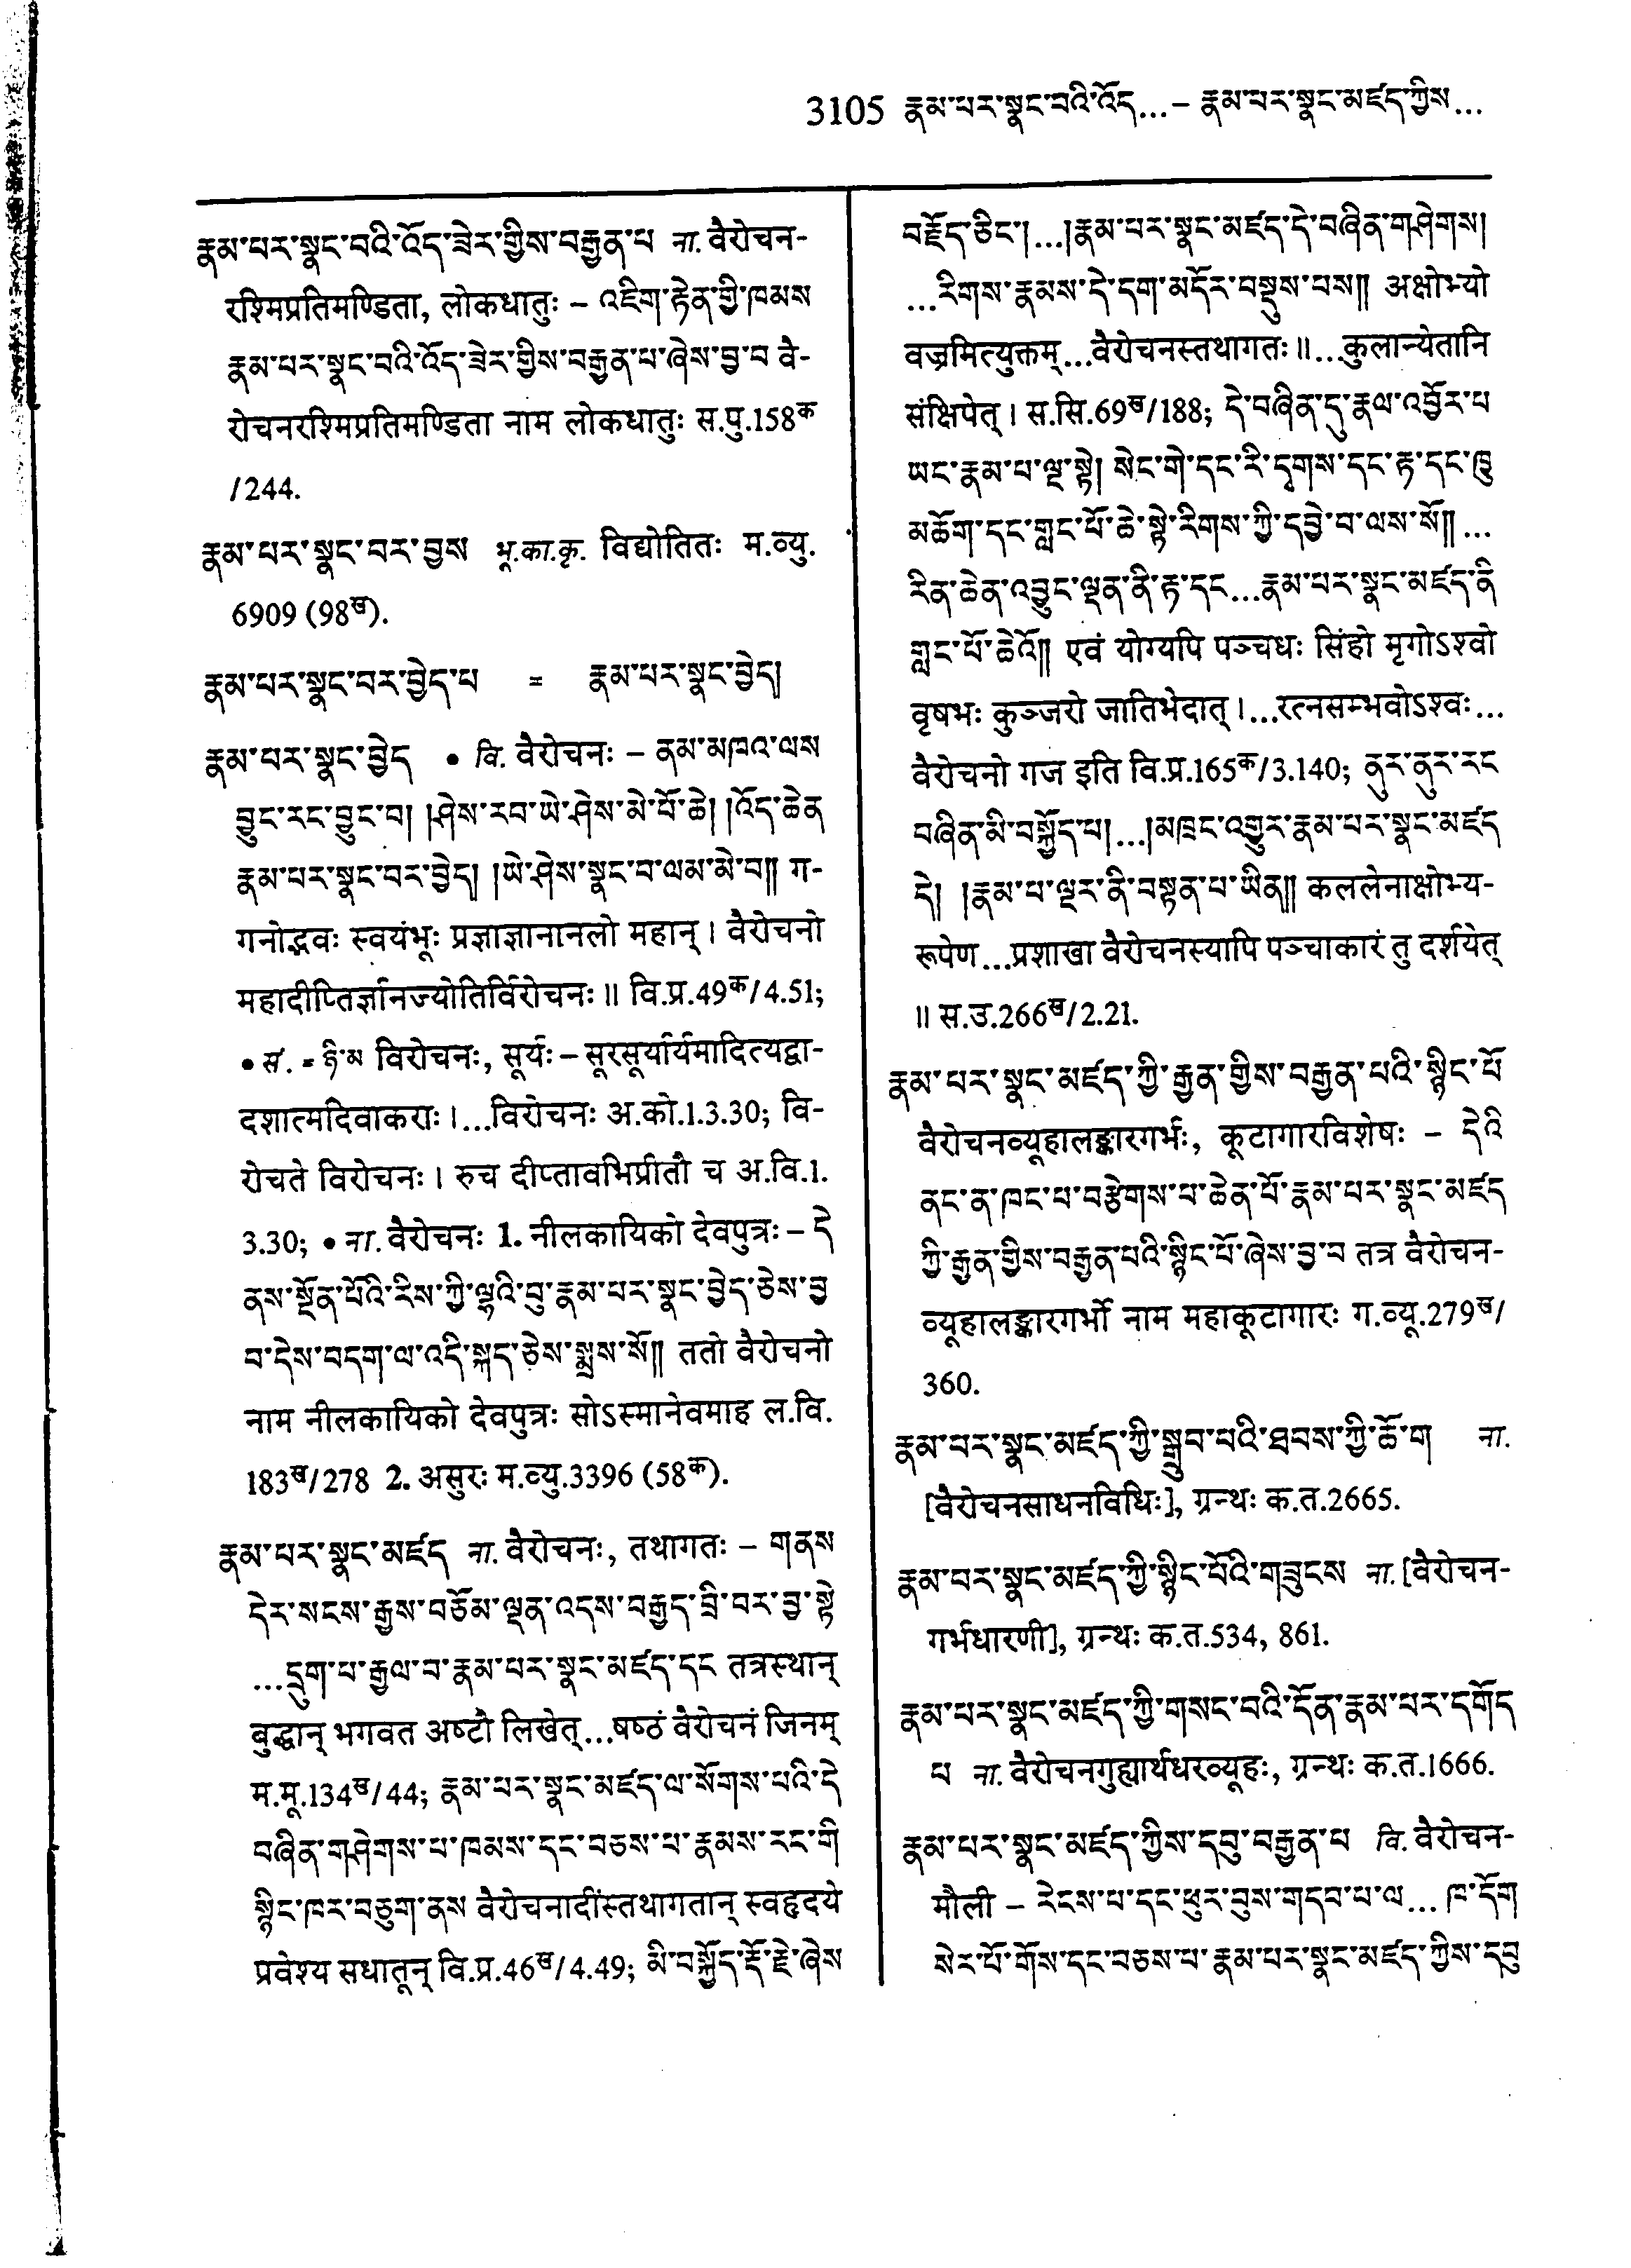 3105 རྣམ་པར་སྣང་བའི་འོད...– རྣམ་པར་སྣང་མཛད་ཀྱིས...
རྣམ་པར་སྣང་བའི་འོད་ཟེར་གྱིས་བརྒྱན་པ ना. वैरोचन-
रश्मिप्रतिमण्डिता, लोकधातुः – འཇིག་རྟེན་གྱི་ཁམས
རྣམ་པར་སྣང་བའི་འོད་ཟེར་གྱིས་བརྒྱན་པ་ཞེས་བྱ་བ वै-
रोचनरश्मिप्रतिमण्डिता नाम लोकधातुः स.पु.158क
/244.
རྣམ་པར་སྣང་བར་བྱས भू.का.कृ. विद्योतितः म.व्यु.
6909 (98ख).
རྣམ་པར་སྣང་བར་བྱེད་པ = རྣམ་པར་སྣང་བྱེད།
རྣམ་པར་སྣང་བྱེད • वि. वैरोचनः – ནམ་མཁའ་ལས
བྱུང་རང་བྱུང་བ། །ཤེས་རབ་ཡེ་ཤེས་མེ་པོ་ཆེ། །འོད་ཆེན
རྣམ་པར་སྣང་བར་བྱེད། །ཡེ་ཤེས་སྣང་བ་ལམ་མེ་བ།། ग-
गनोद्भवः स्वयंभूः प्रज्ञाज्ञानानलो महान् । वैरोचनो
महादीप्तिर्ज्ञानज्योतिर्विरोचनः ॥ वि.प्र.49क/4.51;
• सं. = ཉི་མ विरोचनः, सूर्यः – सूरसूर्यार्यमादित्यद्वा-
दशात्मदिवाकराः ।...विरोचनः अ.को.1.3.30; वि-
रोचते विरोचनः । रुच दीप्तावभिप्रीतौ च अ.वि.1.
3.30; • ना. वैरोचनः 1. नीलकायिको देवपुत्रः – དེ
ནས་སྔོན་པོའི་རིས་ཀྱི་ལྷའི་བུ་རྣམ་པར་སྣང་བྱེད་ཅེས་བྱ
བ་དེས་བདག་ལ་འདི་སྐད་ཅེས་སྨྲས་སོ།། ततो वैरोचनो
नाम नीलकायिको देवपुत्रः सोऽस्मानेवमाह ल.वि.
183ख/278 2. असुरः म.व्यु.3396 (58क).
རྣམ་པར་སྣང་མཛད ना. वैरोचनः, तथागतः – གནས
དེར་སངས་རྒྱས་བཅོམ་ལྡན་འདས་བརྒྱད་བྲི་བར་བྱ་སྟེ
...དྲུག་པ་རྒྱལ་བ་རྣམ་པར་སྣང་མཛད་དང तत्रस्थान्
बुद्धान् भगवत अष्टौ लिखेत्...षष्ठं वैरोचनं जिनम्
म.मू.134ख/44; རྣམ་པར་སྣང་མཛད་ལ་སོགས་པའི་དེ
བཞིན་གཤེགས་པ་ཁམས་དང་བཅས་པ་རྣམས་རང་གི
སྙིང་ཁར་བཅུག་ནས वैरोचनादींस्तथागतान् स्वहृदये
प्रवेश्य सधातून् वि.प्र.46ख/4.49; མི་བསྐྱོད་རྡོ་རྗེ་ཞེས
བརྗོད་ཅིང་།...།རྣམ་པར་སྣང་མཛད་དེ་བཞིན་གཤེགས།
...རིགས་རྣམས་དེ་དག་མདོར་བསྡུས་པས།། अक्षोभ्यो
वज्रमित्युक्तम्...वैरोचनस्तथागतः ॥...कुलान्येतानि
संक्षिपेत् । स.सि.69ख/188; དེ་བཞིན་དུ་རྣལ་འབྱོར་པ
ཡང་རྣམ་པ་ལྔ་སྟེ། སེང་གེ་དང་རི་དྭགས་དང་རྟ་དང་ཁྱུ
མཆོག་དང་གླང་པོ་ཆེ་སྟེ་རིགས་ཀྱི་དབྱེ་བ་ལས་སོ།། ...
རིན་ཆེན་འབྱུང་ལྡན་ནི་རྟ་དང...རྣམ་པར་སྣང་མཛད་ནི
གླང་པོ་ཆེའོ།། एवं योग्यपि पञ्चधः सिंहो मृगोऽश्वो
वृषभः कुञ्जरो जातिभेदात् ।...रत्नसम्भवोऽश्वः...
वैरोचनो गज इति वि.प्र.165क/3.140; ནུར་ནུར་རང
བཞིན་མི་བསྐྱོད་པ།...།མཁྲང་འགྱུར་རྣམ་པར་སྣང་མཛད
དེ། །རྣམ་པ་ལྔར་ནི་བསྟན་པ་ཡིན།། कललेनाक्षोभ्य-
रूपेण...प्रशाखा वैरोचनस्यापि पञ्चाकारं तु दर्शयेत्
॥ स.उ.266ख/2.21.
རྣམ་པར་སྣང་མཛད་ཀྱི་རྒྱན་གྱིས་བརྒྱན་པའི་སྙིང་པོ
वैरोचनव्यूहालङ्कारगर्भः, कूटागारविशेषः – དེའི
ནང་ན་ཁང་པ་བརྩེགས་པ་ཆེན་པོ་རྣམ་པར་སྣང་མཛད
ཀྱི་རྒྱན་གྱིས་བརྒྱན་པའི་སྙིང་པོ་ཞེས་བྱ་བ तत्र वैरोचन-
व्यूहालङ्कारगर्भो नाम महाकूटागारः ग.व्यू.279ख/
360.
རྣམ་པར་སྣང་མཛད་ཀྱི་སྒྲུབ་པའི་ཐབས་ཀྱི་ཆོ་ག ना.
[वैरोचनसाधनविधिः], ग्रन्थः क.त.2665.
རྣམ་པར་སྣང་མཛད་ཀྱི་སྙིང་པོའི་གཟུངས ना. [वैरोचन-
गर्भधारणी], ग्रन्थः क.त.534, 861.
རྣམ་པར་སྣང་མཛད་ཀྱི་གསང་བའི་དོན་རྣམ་པར་དགོད
པ ना. वैरोचनगुह्यार्थधरव्यूहः, ग्रन्थः क.त.1666.
རྣམ་པར་སྣང་མཛད་ཀྱིས་དབུ་བརྒྱན་པ वि. वैरोचन-
मौली – རེངས་པ་དང་ཕུར་བུས་གདབ་པ་ལ... ཁ་དོག
སེར་པོ་གོས་དང་བཅས་པ་རྣམ་པར་སྣང་མཛད་ཀྱིས་དབུ